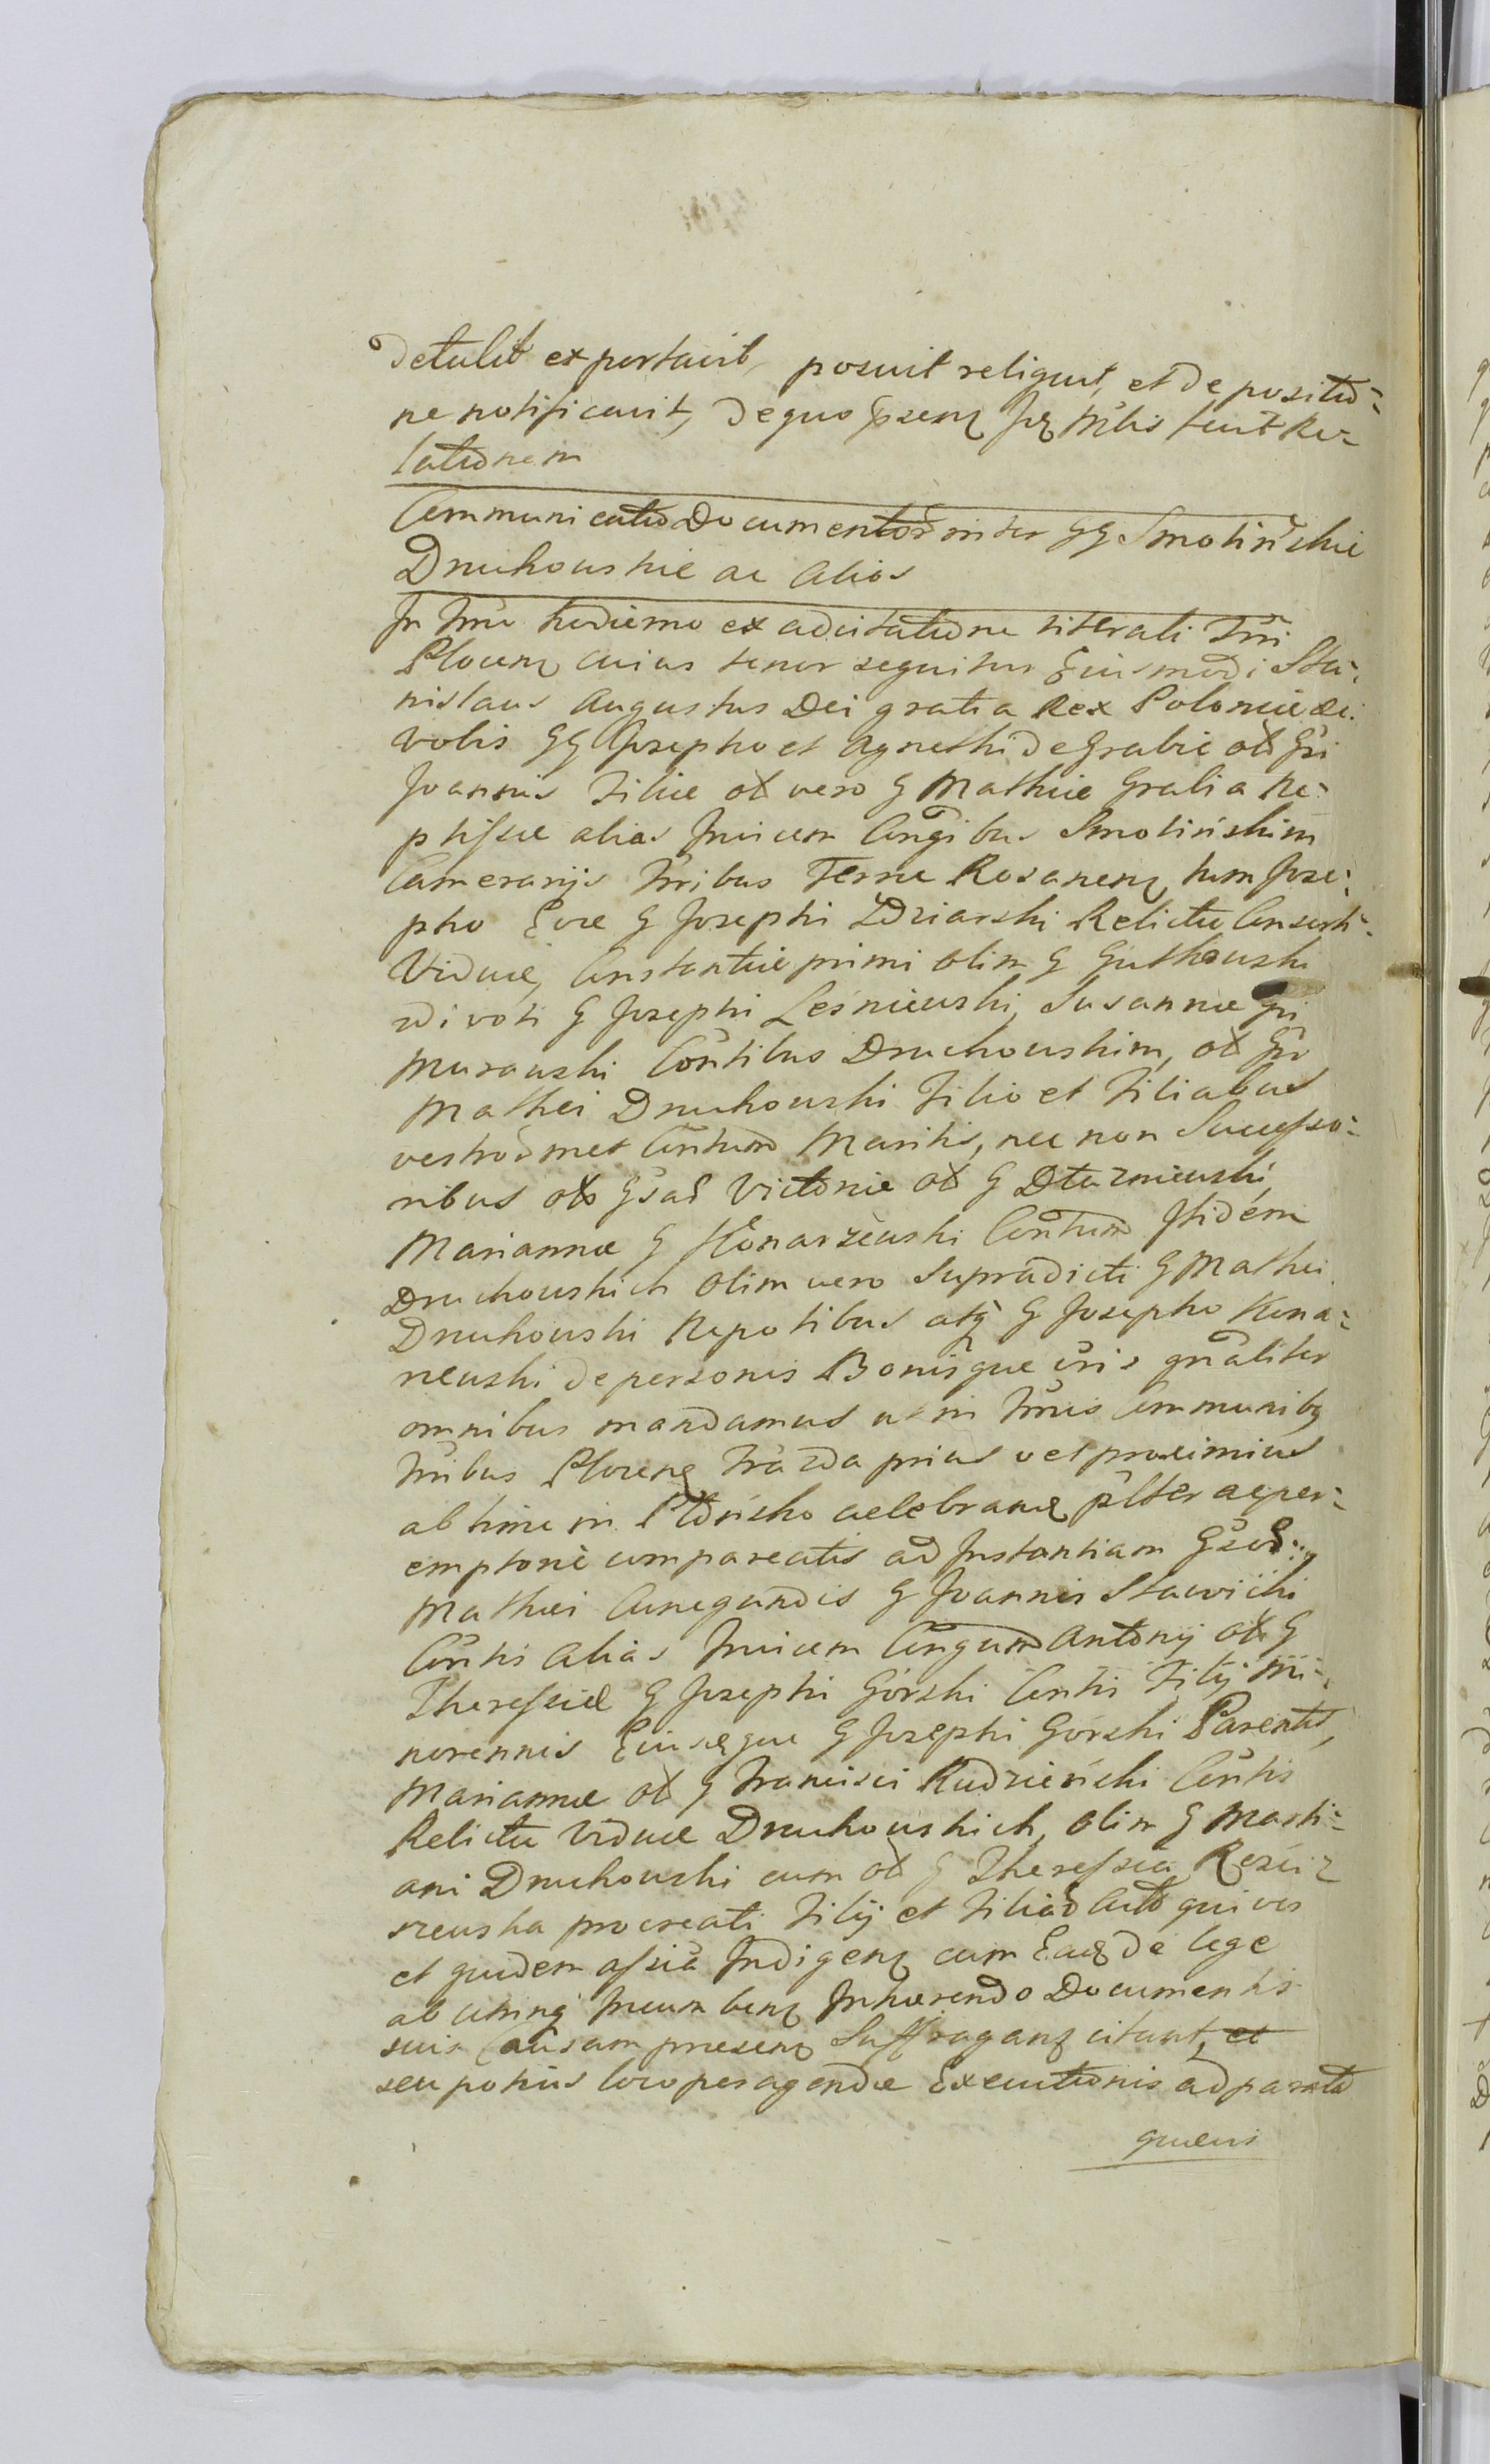 detulit exportavit, posuit reliquit, et de positio-
ne notificavit, de quo p̃senq̃ Jq̃ Mlis fecit Re-
lationem
Communicatio Documentor̃ inter GG Smolinskie
Druchowskie ac alios
In Tm̃no hodierno ex adcitatione literali Trri
Plocenq̃ cuius tenor sequitur Eiusmodi Sta-
nislaus Augustus Dei gratia Rex Poloniæ &c:
vobis GG Josepho et Agnethi de Grabie olĩ Gsi
Joannis Filiæ olĩ vero G Mathiæ Grabia Ne-
ptissæ alias Invicem Congibus Smolinskim
Camerarijs Trribus Terræ Rosanenq̃ tum Jose-
pho Evæ G Josephi Zdziarski Relictæ Consorti-
Viduæ, Constantiæ primi olim G Gutkowski
2di voti G Josephi Leśniewski, Susannæ Gsi
Murawski Contibus Druchowskim, olĩ Gsi
Mathei Druchowski Filio et Filiabus
vestrõdmet Contum Maritis, nec non Successo-
ribus olĩ Gsae Victoriæ olĩ G Dłuzniewski,
Mariannæ G Konarzewski Contum Itidem
Druchowskich olim vero Supradicti G Mathei
Druchowski Nepotibus atq̃ G Josepho Kona-
rzewski de personis Bonisque vris gnaliter
omnibus mandamus ut in Tmis Communibq̃
Trribus Plocenq̃ Tra 2da prius vel proximius
ab hinc in Płońsko celebranq̃ pltter ac per-
emptoriè compareatis ad Instantiam Gsor̃
Mathei Cunegundis G Joannis Stawicki
Contis alias Invicem Congum Antonij olĩ G
Theressiæ G Josephi Górski Contis Filij Mi-
norennis Eiusque G Josephi Górski Parentis,
Mariannæ olĩ G Francisci Rudzieński Contis
Relictæ Viduæ Druchowskich, olim G Marti-
ani Druchowski cum olĩ G Theressia
procreati Filij et Filiar̃ Acto qui vos
et quidem Assiã Indigenq̃ cum Eaq̃ de lege
ab utrinq̃ Incumbenq̃ Inhærendo Documentis
suis Causam præsenq̃ Suffraganq̃ citant, et
seu potius loco peragendæ Executionis ad parata
quævis